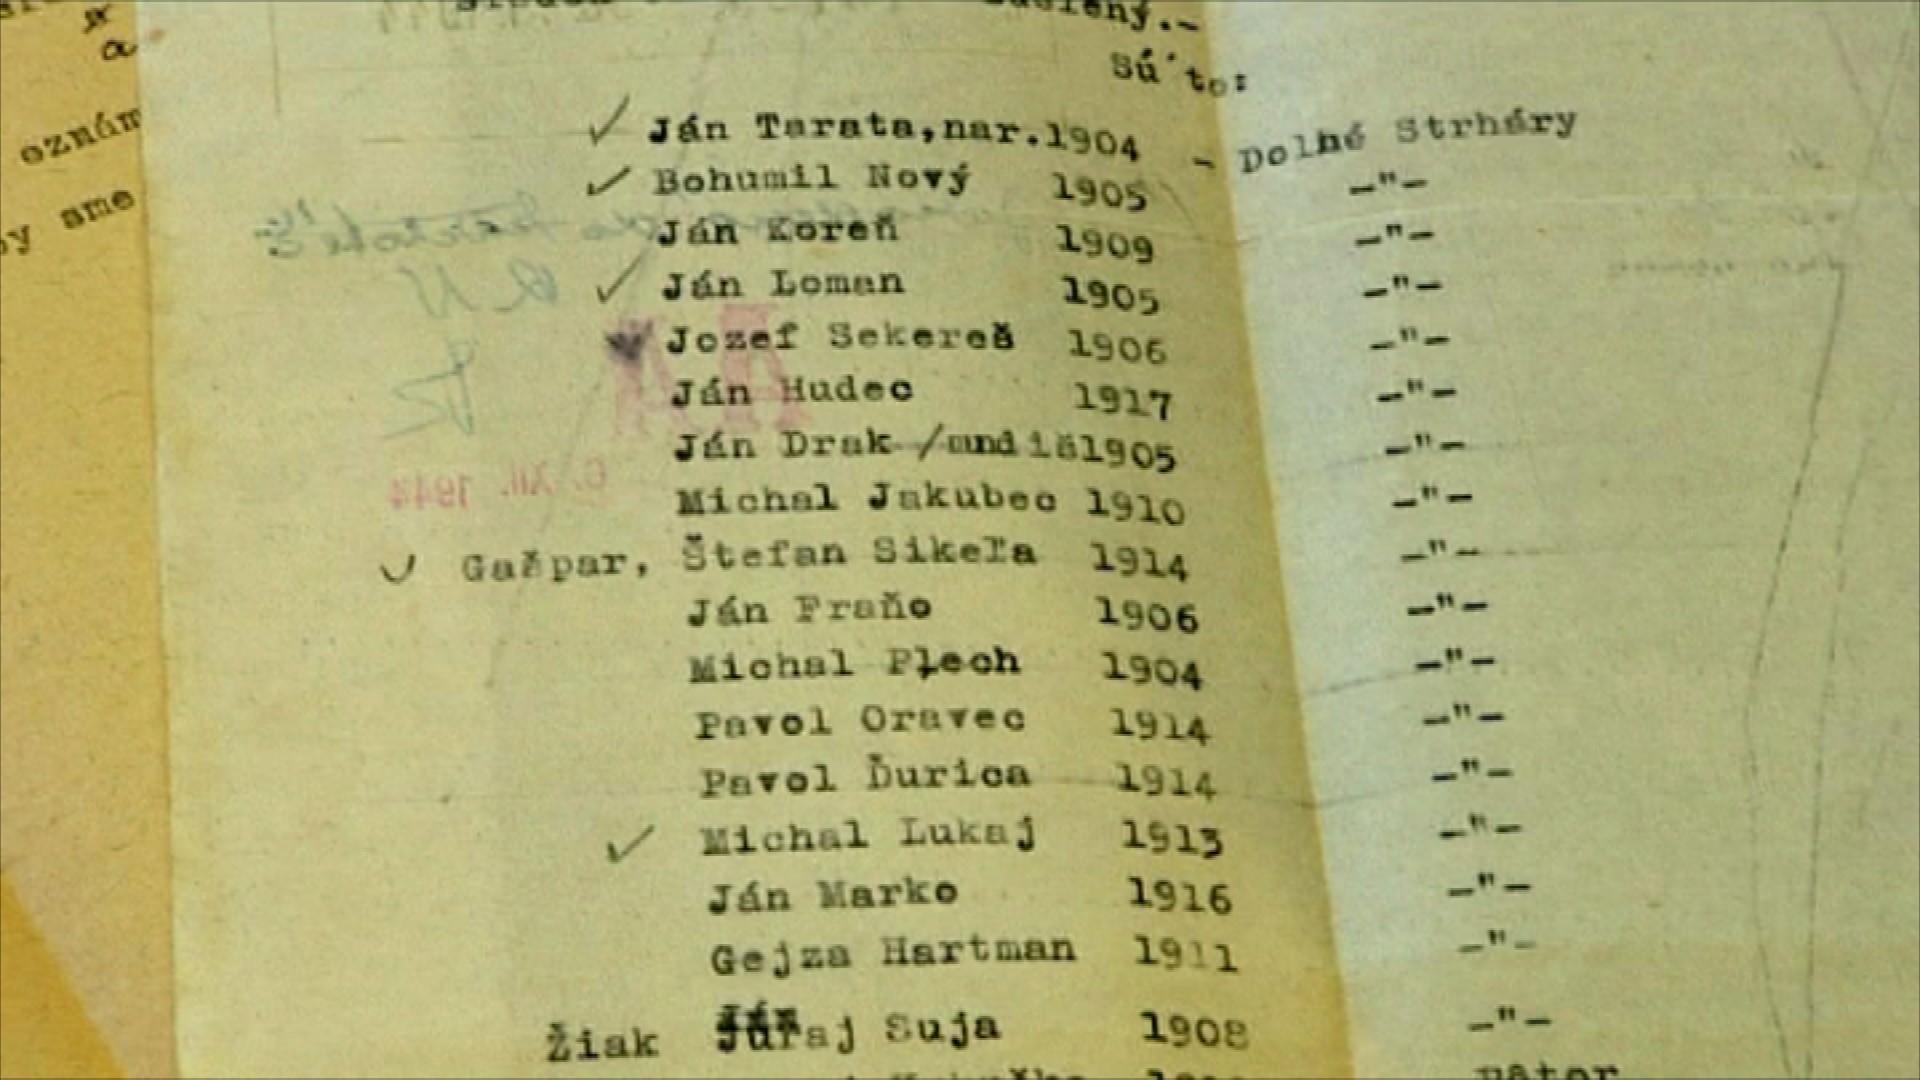 a
oznám
by sme
Sú to:
Ján Tarata, nar. 1904 - Dolné Strháry
Bohumil Nový 1905 -"-
Ján Koreň 1909 -"-
Ján Loman 1905 -"-
Jozef Sekereš 1906 -"-
Ján Hudec 1917 -"-
Ján Drak / 1905 -"-
Michal Jakubec 1910 -"-
Gašpar, Štefan Sikeľa 1914 -"-
Ján Fraňo 1906 -"-
Michal Plech 1904 -"-
Pavol Oravec 1914 -"-
Pavol Ďurica 1914 -"-
Michal Lukaj 1913 -"-
Ján Marko 1916 -"-
Gejza Hartman 1911 -"-
Žiak Juraj Suja 1908 -"-
6. XII. 1944